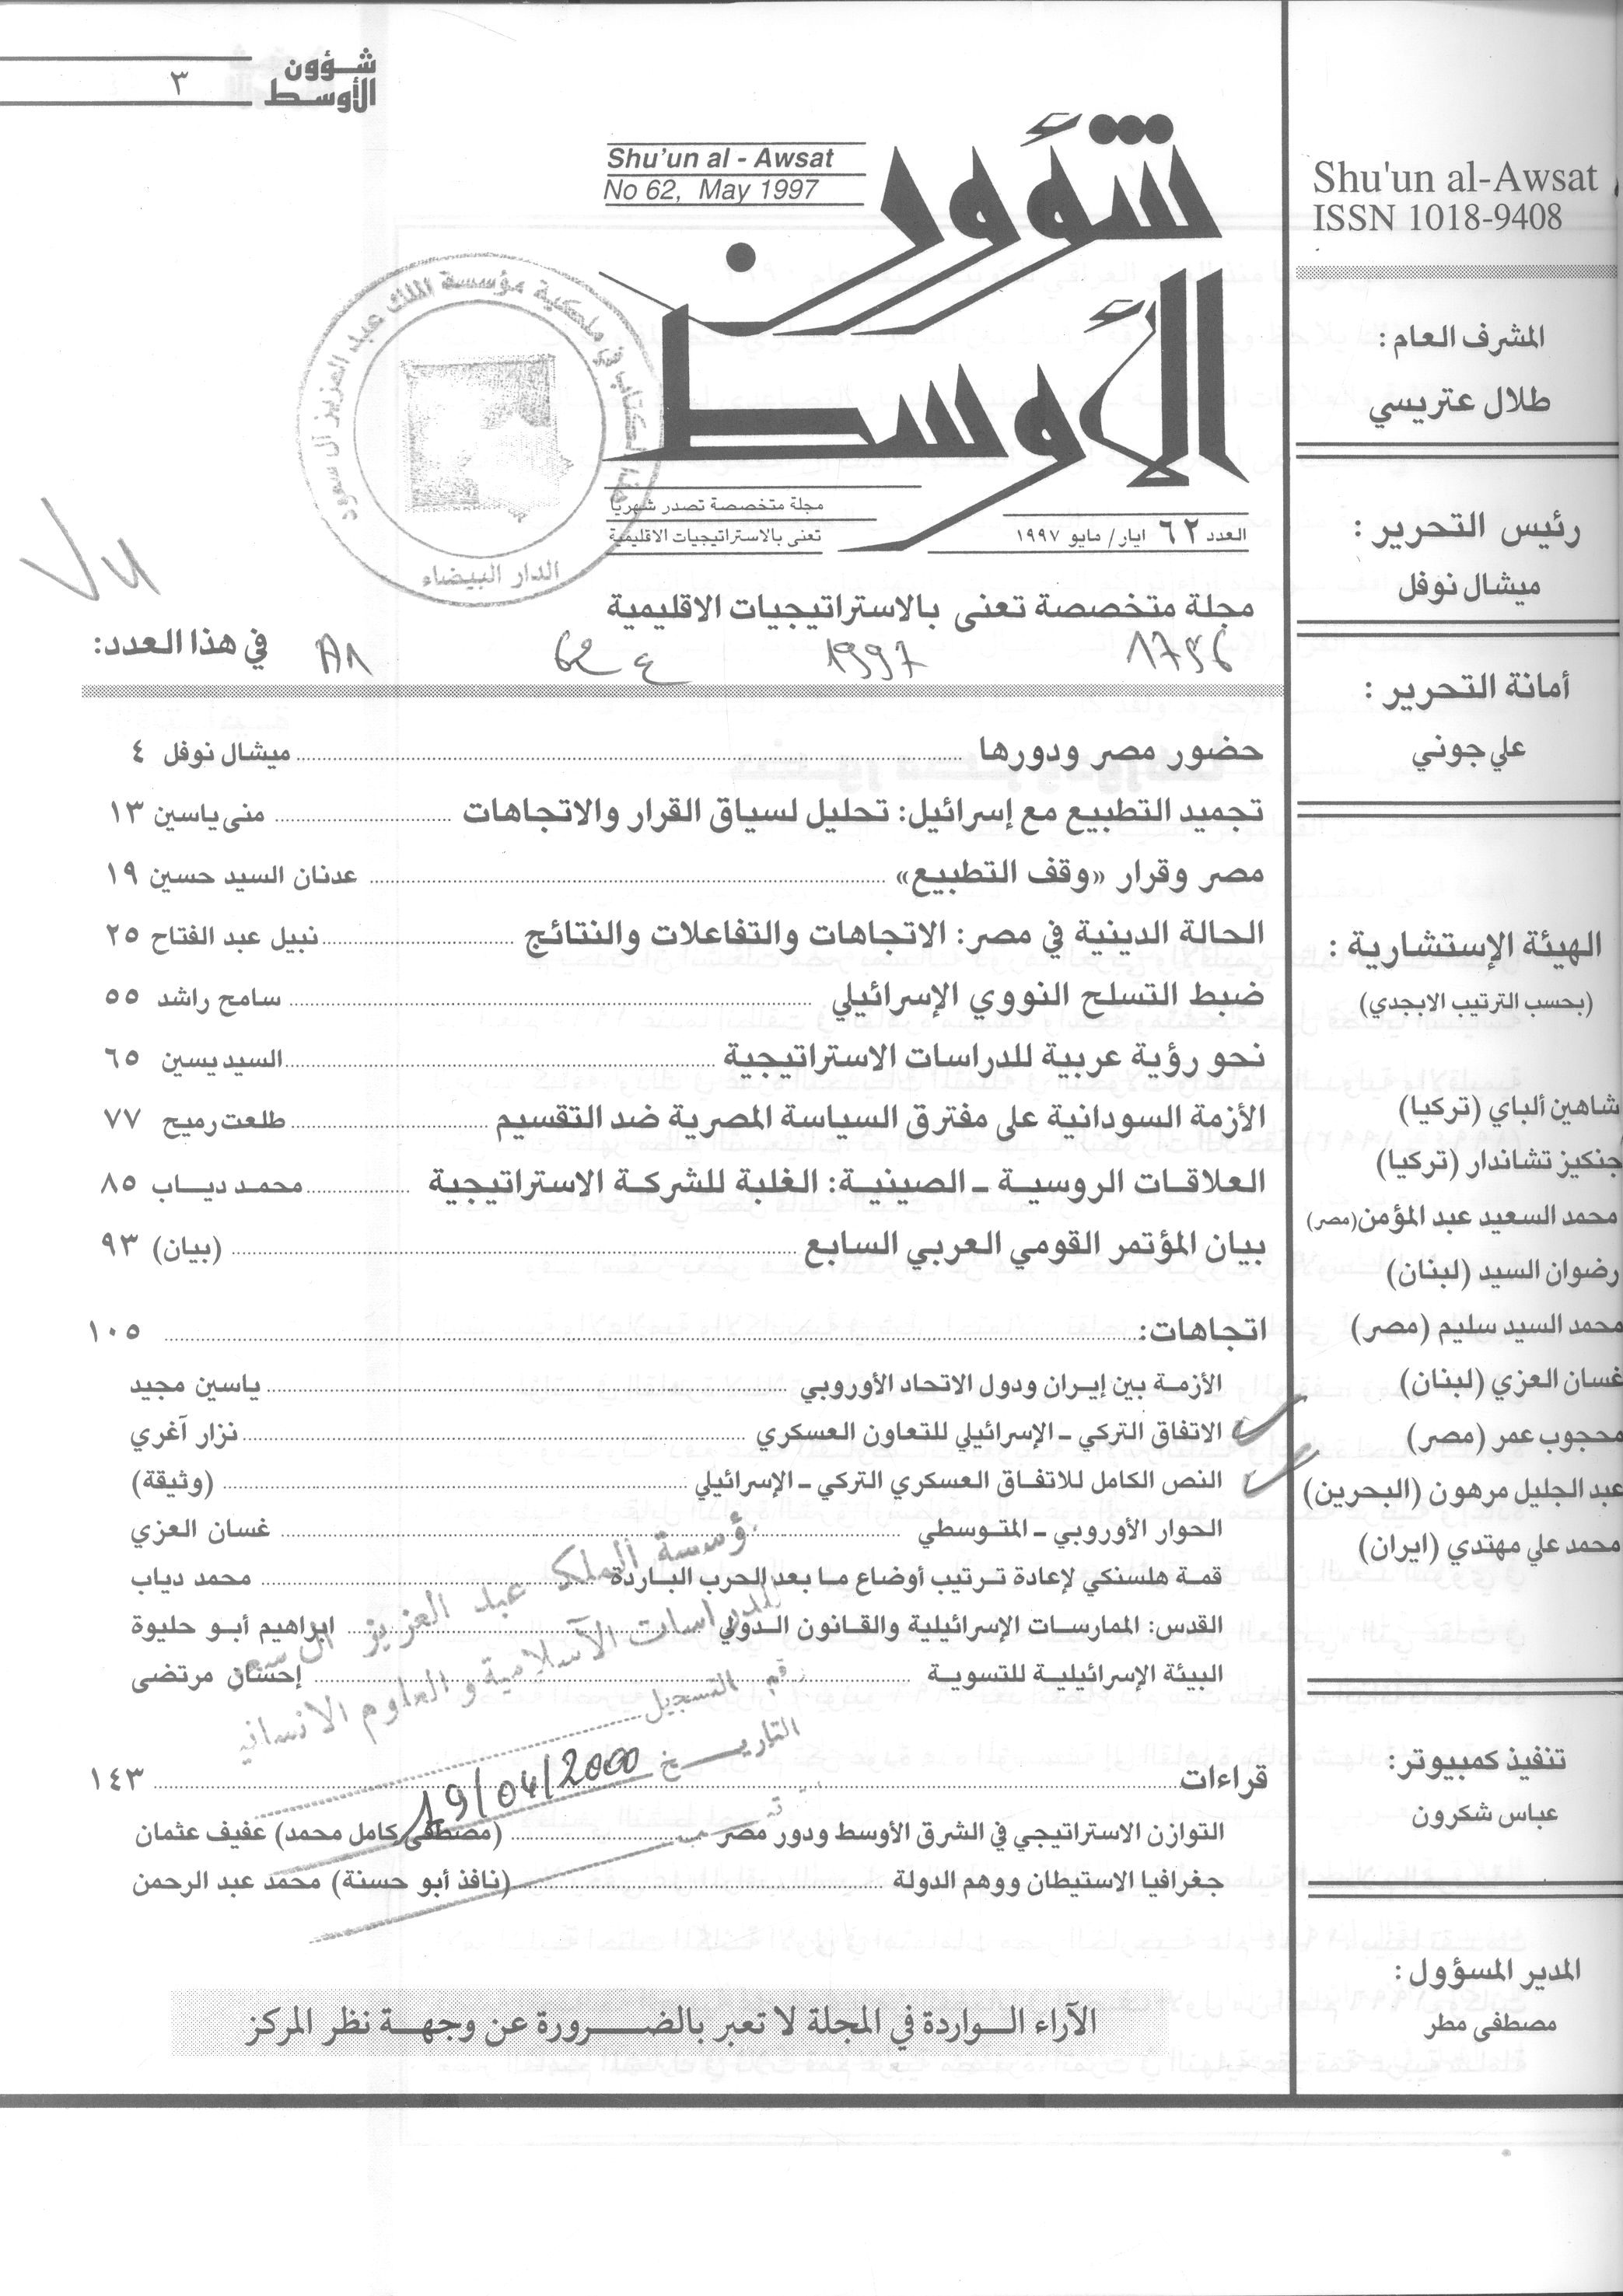 شؤون
الأوسط
٣
Shu'un al - Awsat
No 62, May 1997
شؤون
الأوسط
العدد ٦٢ ايار/ مايو ١٩٩٧
مجلة متخصصة تصدر شهريا
تعنى بالاستراتيجيات الاقليمية
هذا الكتاب في ملكية مؤسسة الملك عبد العزيز آل سعود
الدار البيضاء
مجلة متخصصة تعنى بالاستراتيجيات الاقليمية
1997
62 ع
في هذا العدد:
حضور مصر ودورها ميشال نوفل ٤
تجميد التطبيع مع إسرائيل: تحليل لسياق القرار والاتجاهات منى ياسين ١٣
مصر وقرار «وقف التطبيع» عدنان السيد حسين ١٩
الحالة الدينية في مصر: الاتجاهات والتفاعلات والنتائج نبيل عبد الفتاح ٢٥
ضبط التسلح النووي الإسرائيلي سامح راشد ٥٥
نحو رؤية عربية للدراسات الاستراتيجية السيد يسين ٦٥
الأزمة السودانية على مفترق السياسة المصرية ضد التقسيم طلعت رميح ٧٧
العلاقات الروسية - الصينية: الغلبة للشركة الاستراتيجية محمد دياب ٨٥
بيان المؤتمر القومي العربي السابع (بيان) ٩٣
اتجاهات: ١٠٥
الأزمة بين إيران ودول الاتحاد الأوروبي ياسين مجيد
الاتفاق التركي - الإسرائيلي للتعاون العسكري نزار آغري
النص الكامل للاتفاق العسكري التركي - الإسرائيلي (وثيقة)
الحوار الأوروبي - المتوسطي غسان العزي
قمة هلسنكي لإعادة ترتيب أوضاع ما بعد الحرب الباردة محمد دياب
القدس: الممارسات الإسرائيلية والقانون الدولي ابراهيم أبو حليوة
البيئة الإسرائيلية للتسوية إحسان مرتضى
قراءات ١٤٣
التوازن الاستراتيجي في الشرق الأوسط ودور مصر (مصطفى كامل محمد) عفيف عثمان
جغرافيا الاستيطان ووهم الدولة (نافذ أبو حسنة) محمد عبد الرحمن
مؤسسة الملك عبد العزيز آل سعود
للدراسات الاسلامية والعلوم الانسانية
رقم التسجيل
التاريخ 19/04/2000
الآراء الواردة في المجلة لا تعبر بالضرورة عن وجهة نظر المركز
Shu'un al-Awsat
ISSN 1018-9408
المشرف العام:
طلال عتريسي
رئيس التحرير:
ميشال نوفل
أمانة التحرير:
علي جوني
الهيئة الإستشارية:
(بحسب الترتيب الابجدي)
شاهين ألباي (تركيا)
جنكيز تشاندار (تركيا)
محمد السعيد عبد المؤمن (مصر)
رضوان السيد (لبنان)
محمد السيد سليم (مصر)
غسان العزي (لبنان)
محجوب عمر (مصر)
عبد الجليل مرهون (البحرين)
محمد علي مهتدي (ايران)
تنفيذ كمبيوتر:
عباس شكرون
المدير المسؤول:
مصطفى مطر